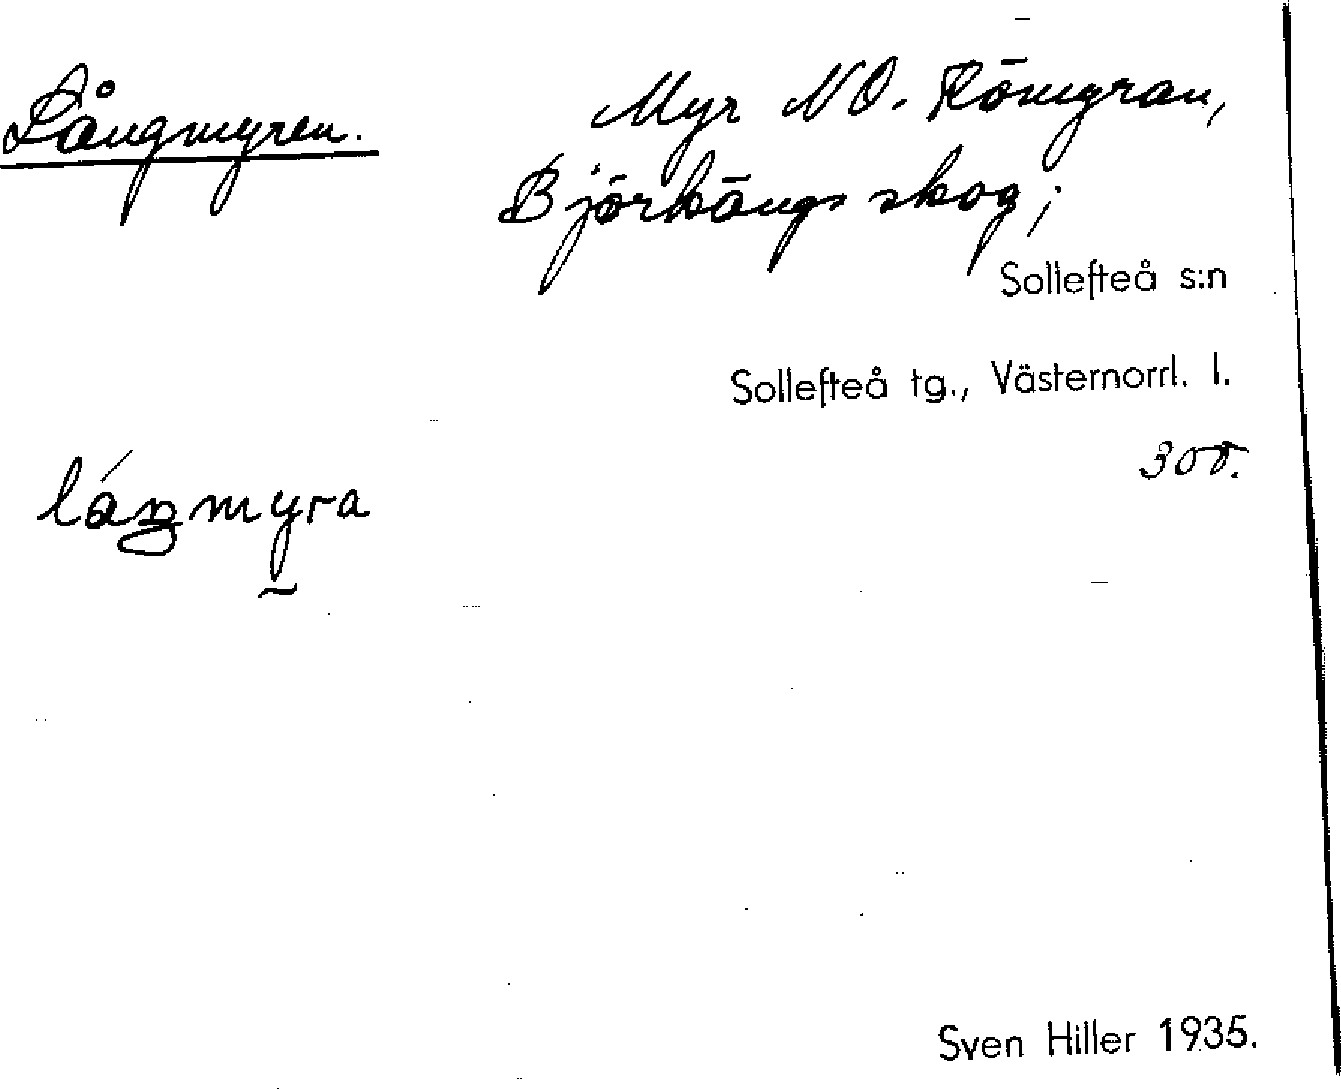 Långmyren.
Myr NO. Römyran,
Björkängs skog;
Sollefteå s:n
Sollefteå tg., Västernorrl. l.
300.
Sven Hiller 1935.